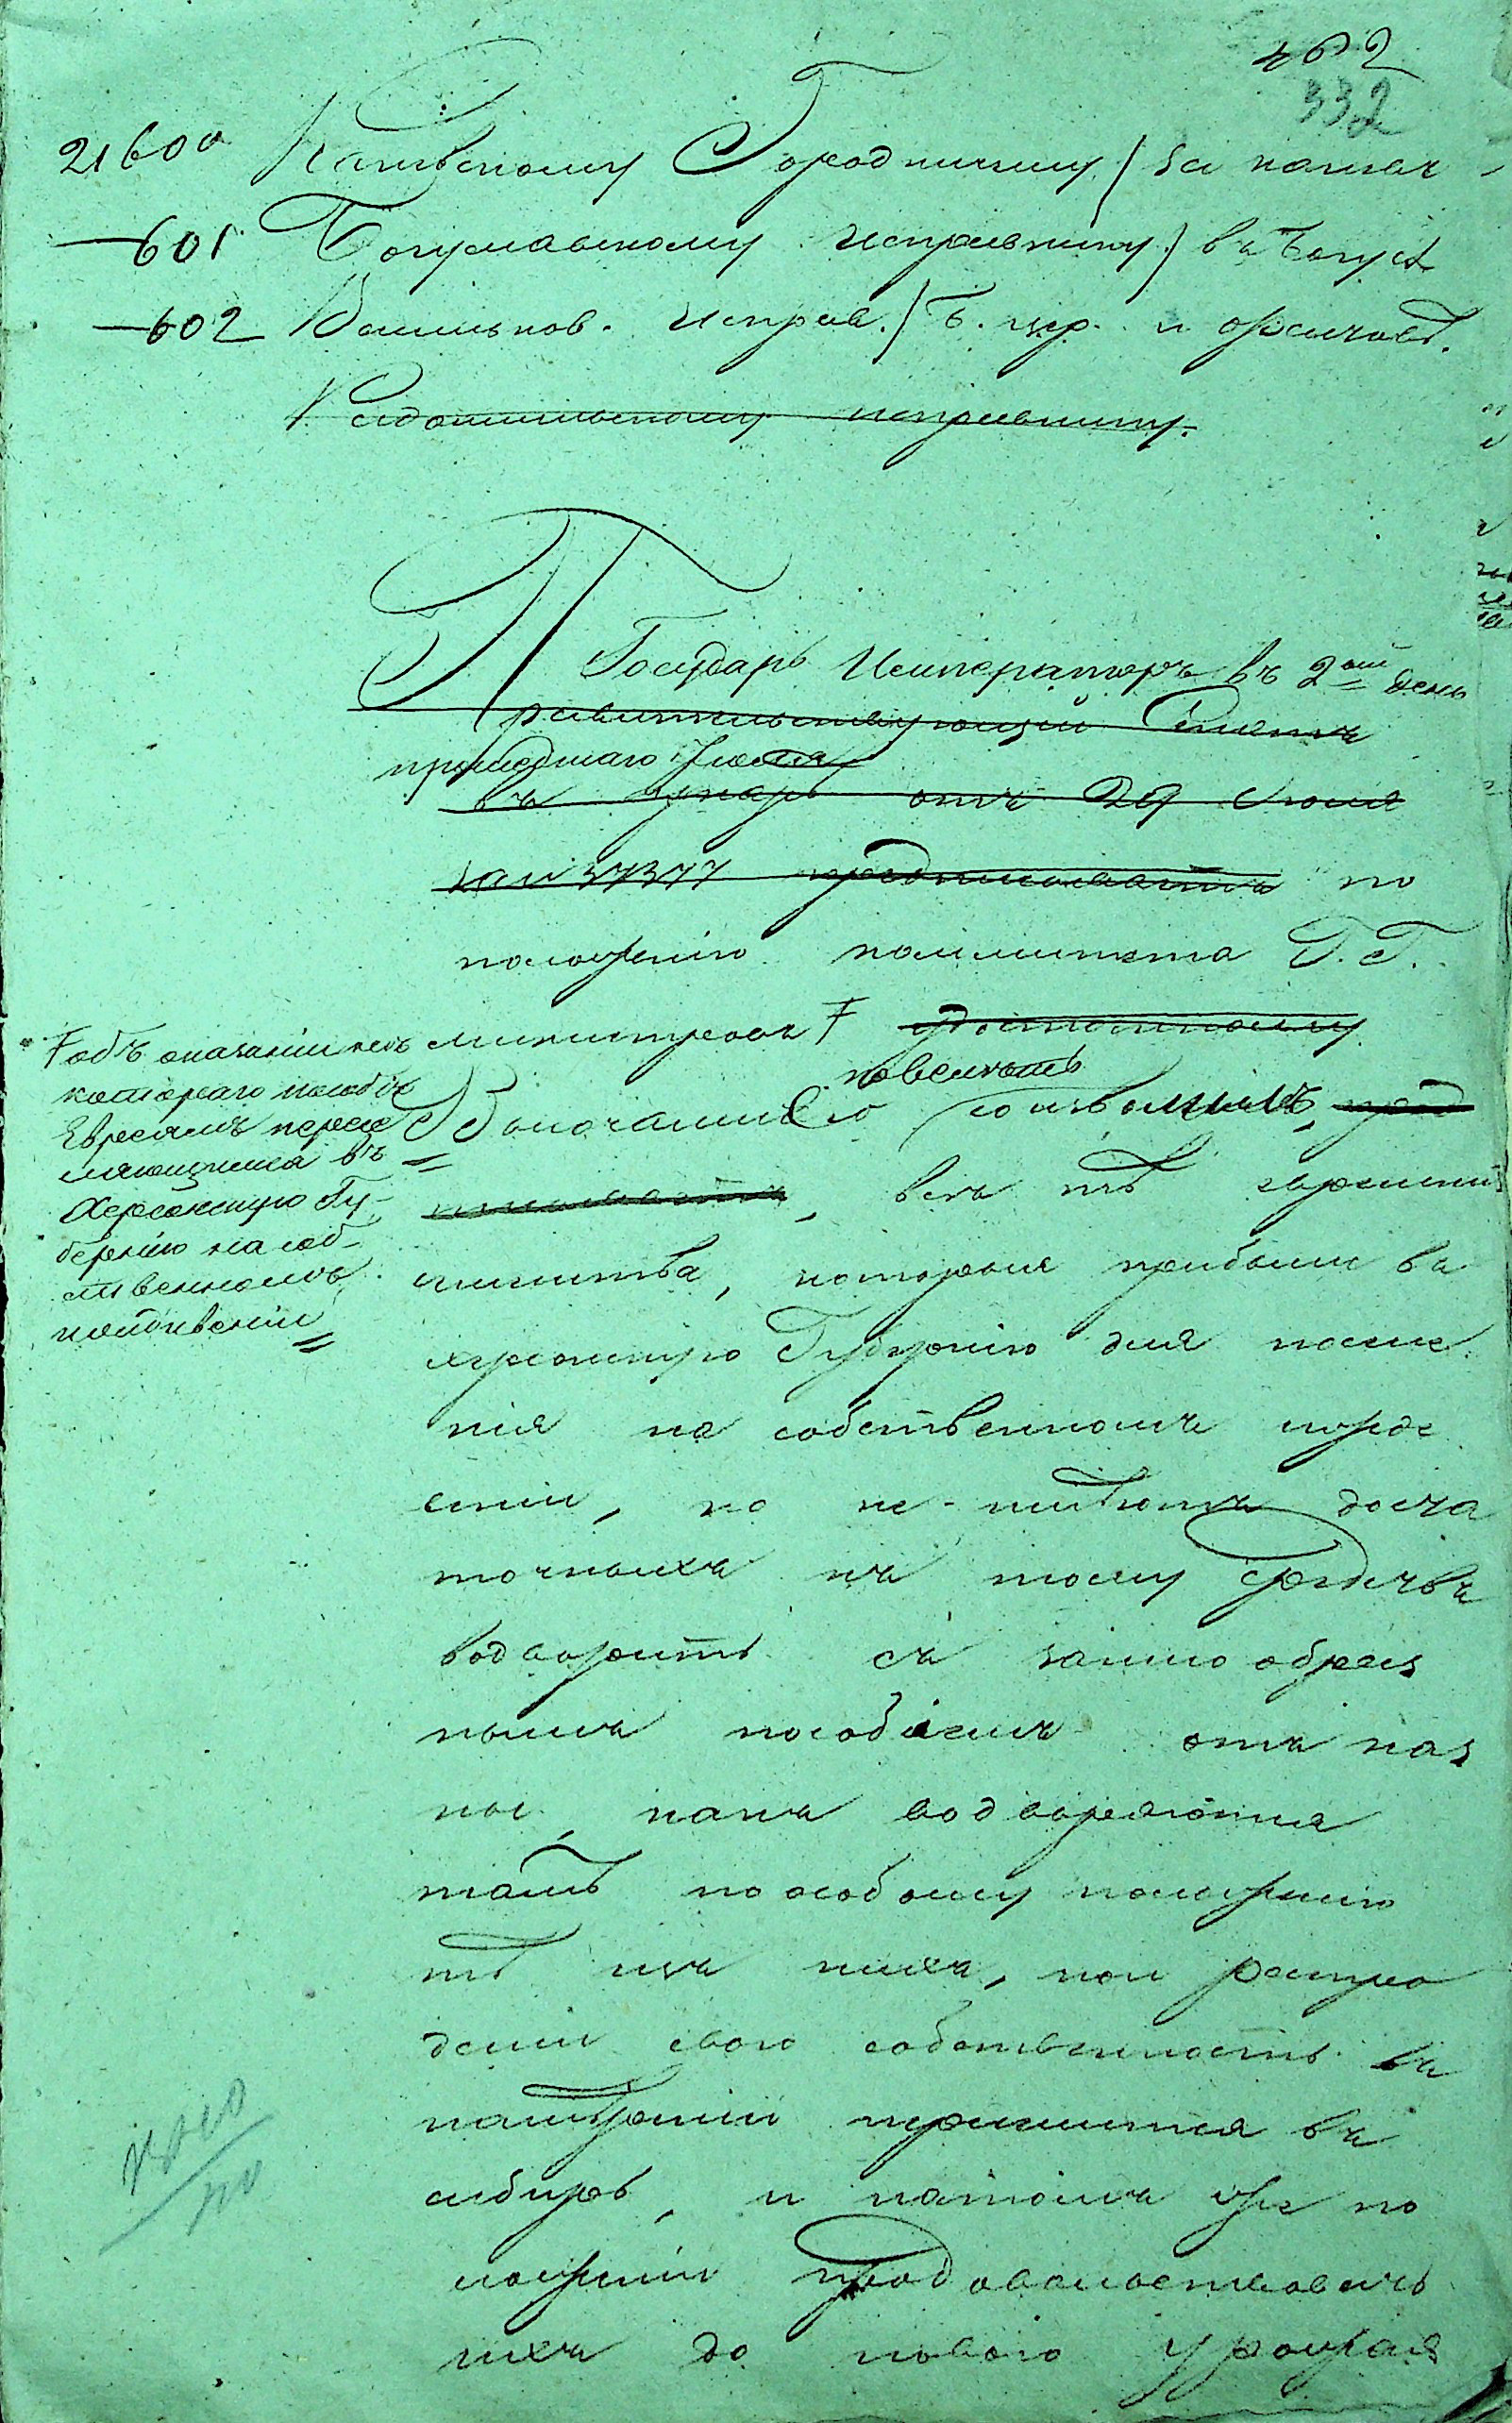 462
332
21600 Каневскому Городничему / за канев
—601 Богуславскому исправнику / въ Богусл
—602 Васильков. исправ. / Б. цер. и
Радомысльскому исправнику.
Государь Императоръ въ 2ой день
Правительствующій Сенатъ
прошедшаго Іюля
въ указѣ отъ 29 Іюля
за № 37377 предписываетъ по
положенію комитета Г.Г.
министровъ F
повелѣть
Высочайше соизволилъ, пред
писываетъ, всѣ тѣ еврейскія
семейства, которыя прибыли въ
херсонскую Губернію для поселе
нія на собственномъ иждив
еніи, но не имѣютъ доста
точныхъ къ тому средствъ
водворить съ заимообраз
нымъ пособіемъ отъ каз
ны, какъ водворяются
тамъ по особому положенію
тѣ изъ нихъ, кои распро
дали свою собственность въ
намѣреніи переселиться въ
сибирь, и на томъ же по
ложеніи продовольствовать
ихъ до новаго урожая
F объ оказаніи нѣ
котораго пособія
Евреямъ пересе
ляющимся въ
Херсонскую Гу-
бернію на соб-
ственномъ
иждивеніи